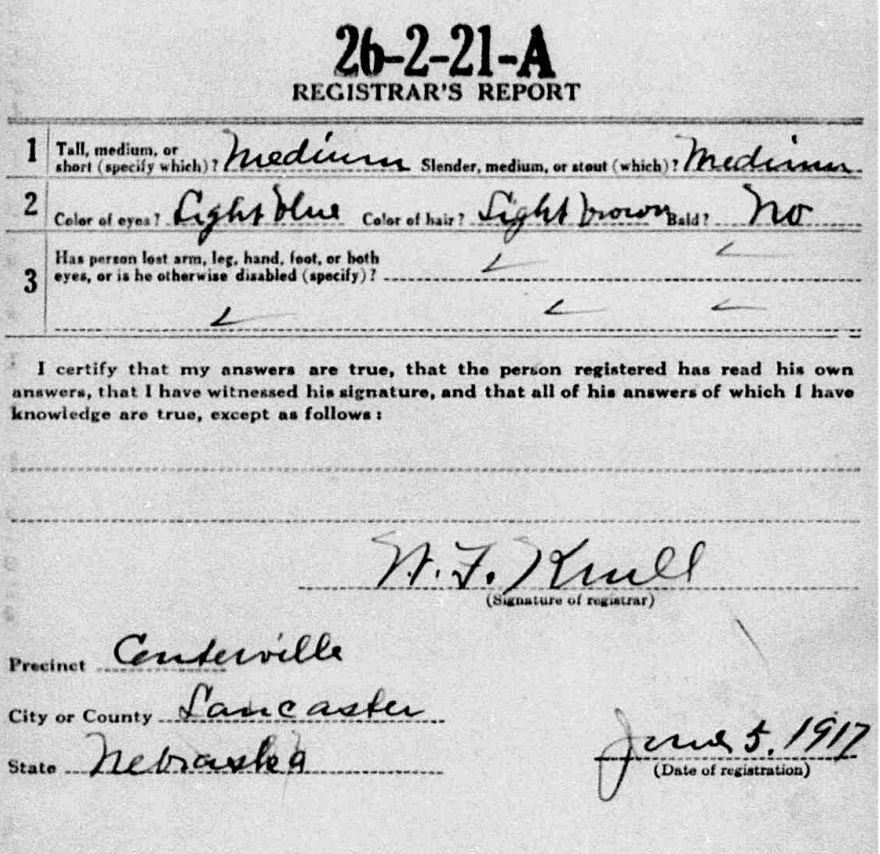 26-2-21-A
REGISTRAR'S REPORT
1 Tall, medium, or short (specify which)? Medium Slender, medium, or stout (which)? Medium
2 Color of eyes? Light blue Color of hair? Light brown Bald? No
3 Has person lost arm, leg, hand, foot, or both
eyes, or is he otherwise disabled (specify)?
I certify that my answers are true, that the person registered has read his own
answers, that I have witnessed his signature, and that all of his answers of which I have
knowledge are true, except as follows:
W. F. Krull
(Signature of registrar)
Precinct Centerville
City or County Lancaster
State Nebraska
June 5, 1917
(Date of registration)